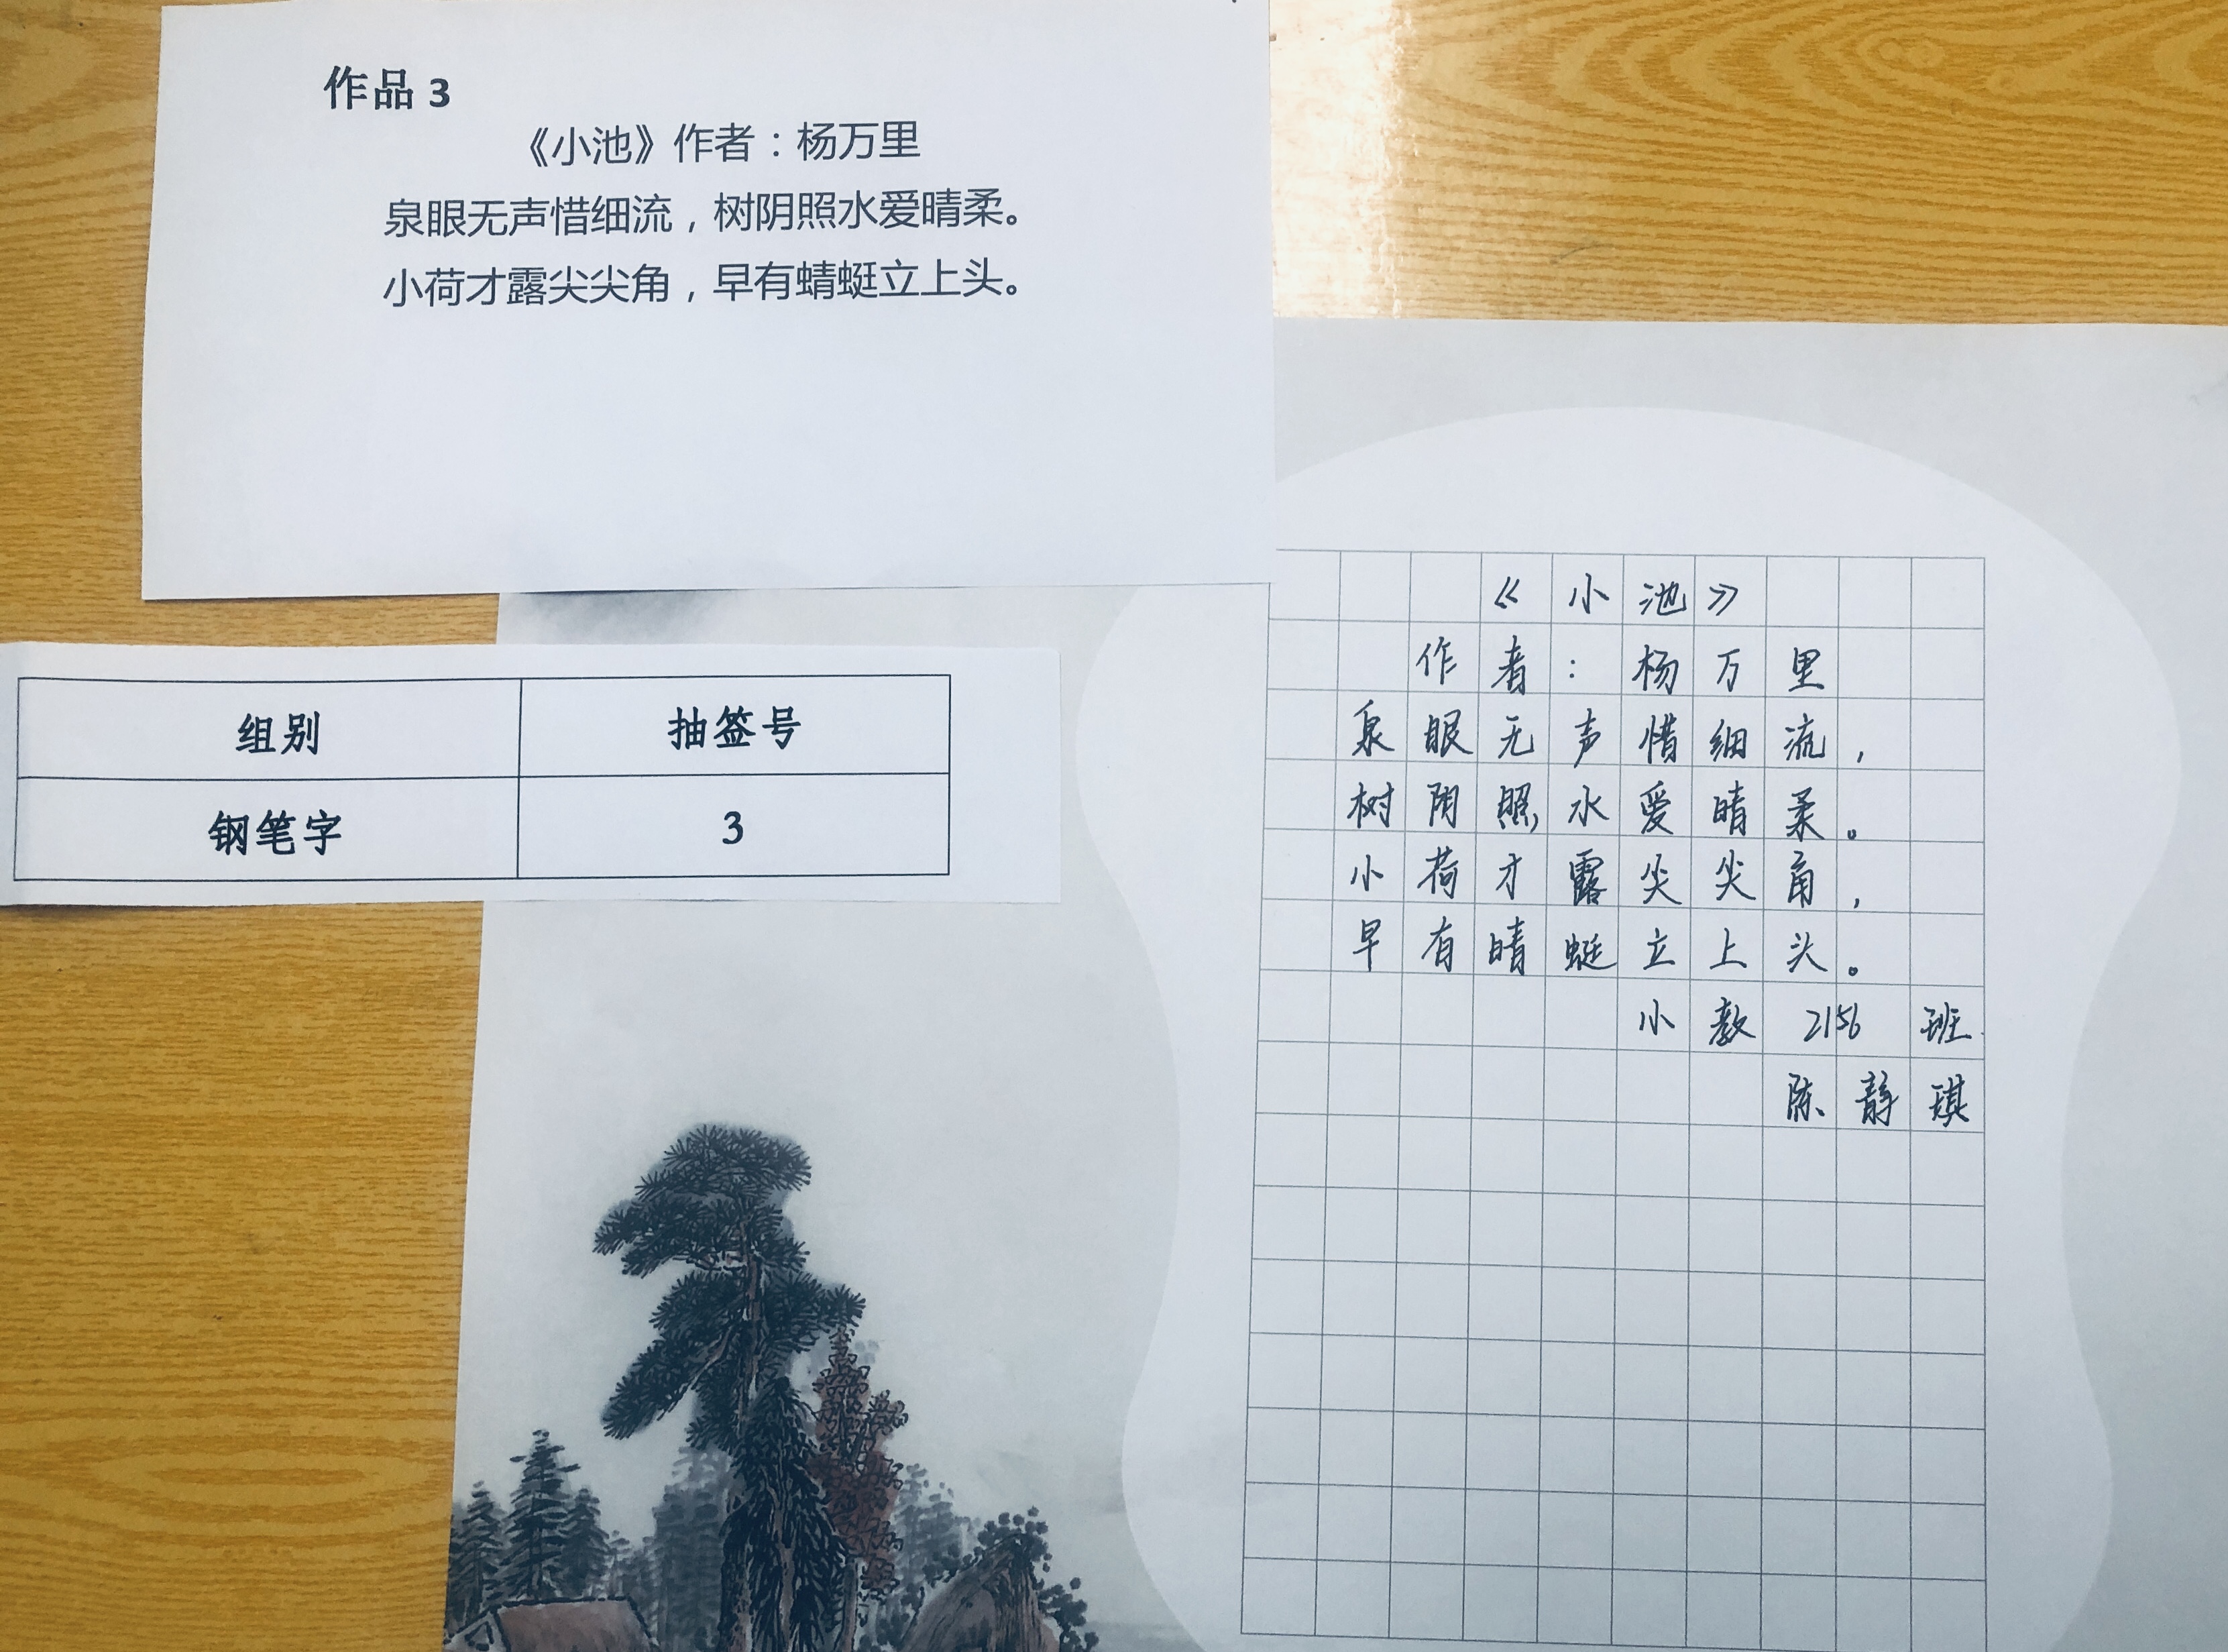 作品 3
《小池》作者：杨万里
泉眼无声惜细流，树阴照水爱晴柔。
小荷才露尖尖角，早有蜻蜓立上头。
组别 抽签号
钢笔字 3
《小池》
作者：杨万里
泉眼无声惜细流，
树阴照水爱晴柔。
小荷才露尖尖角，
早有晴蜓立上头。
小教 2156 班
陈静琪